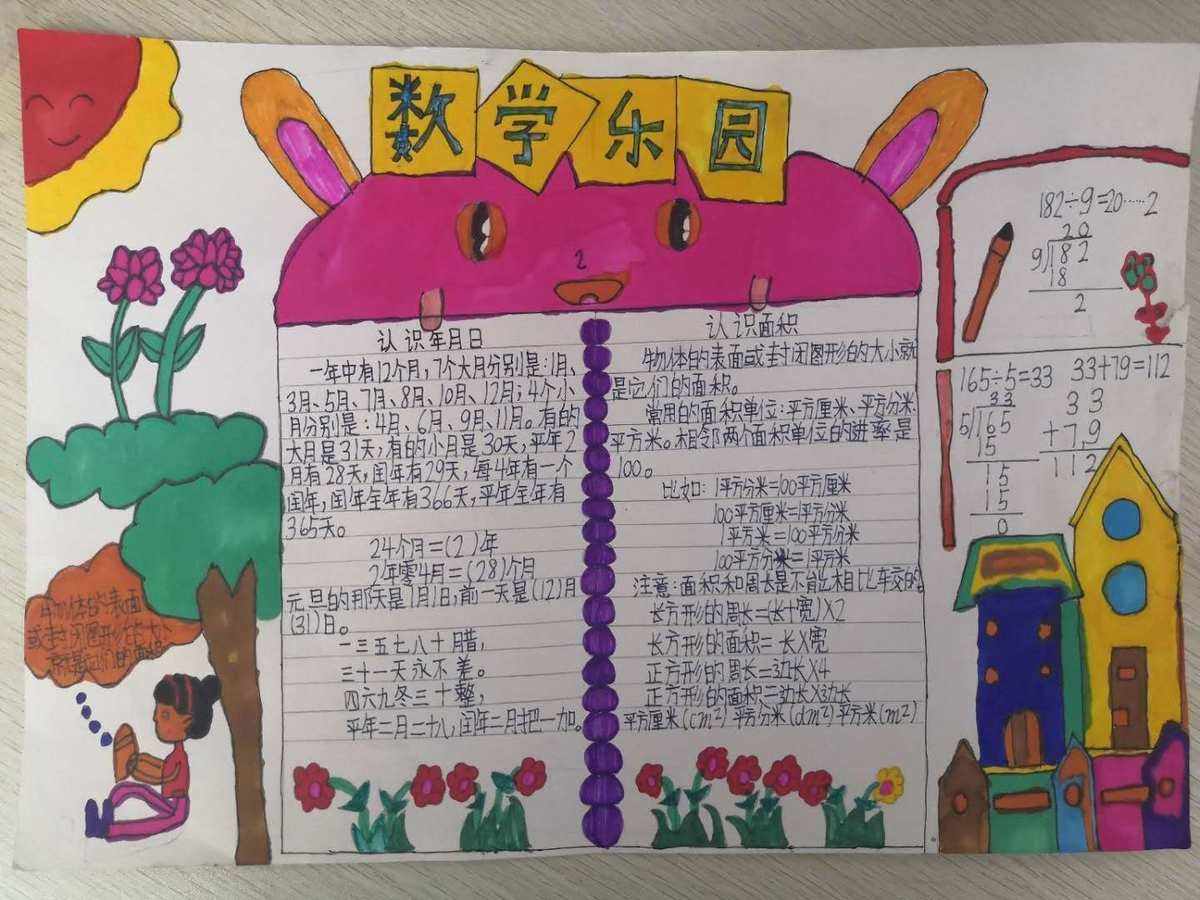 数学乐园
认识年月日
一年中有12个月,7个大月分别是:1月、
3月、5月、7月、8月、10月、12月;4个小
月分别是:4月、6月、9月、11月。有的
大月是31天,有的小月是30天,平年2
月有28天,闰年有29天,每4年有一个
闰年,闰年全年有366天,平年全年有
365天。
24个月=(2)年
2年零4月=(28)个月
元旦的那天是1月1日,前一天是(12)月
(31)日。
一三五七八十腊,
三十一天永不差。
四六九冬三十整,
平年二月二十八,闰年二月把一加。
认识面积
物体的表面或封闭图形的大小就
是它们的面积。
常用的面积单位:平方厘米、平方分米、
平方米。相邻两个面积单位的进率是
100。
比如:1平方分米=100平方厘米
100平方厘米=1平方分米
1平方米=100平方分米
100平方分米=1平方米
注意:面积和周长是不能相比较的
长方形的周长=(长+宽)×2
长方形的面积=长×宽
正方形的周长=边长×4
正方形的面积=边长×边长
平方厘米(cm²)平方分米(dm²)平方米(m²)
182÷9=20……2
20
9)182
18
2
165÷5=33
33
5)165
15
15
15
0
33+79=112
33
+79
112
物体的表面
或封闭图形的大小
就是它们的面积
2